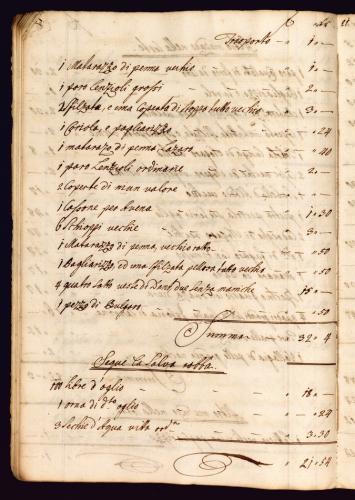 Trasporto " 1 "
1 Matarazzo di penna vechio
1 paro Lenzioli grossi
2 filzata, e una Coperta di stoppa tutto vechio " 3 "
1 Coriola, e pagliarizzo " " 24
1 matarazo di penna Lazaro " " 40
1 paro Lenzioli ordinarie " 2 "
2 Coperte di niun valore
1 Cassone per Avena " 1 " 30
6 Schioppi vechie " 3 "
1 Matarazzo di penna vechio roto " " 50
1 Pagliarizzo, ed una filzata pellosa tutto vechio " " 50
4 quatro senza maniche " 18 "
1 pezzo di Bulgaro " " 50
Summa 32 " 4
Segue la Salva robba
100 libre d'oglio " 18 "
1 orna di d.to oglio " " 24
3 Sechie d'Aqua vita ord.a " 3 " 30
" 21 " 54